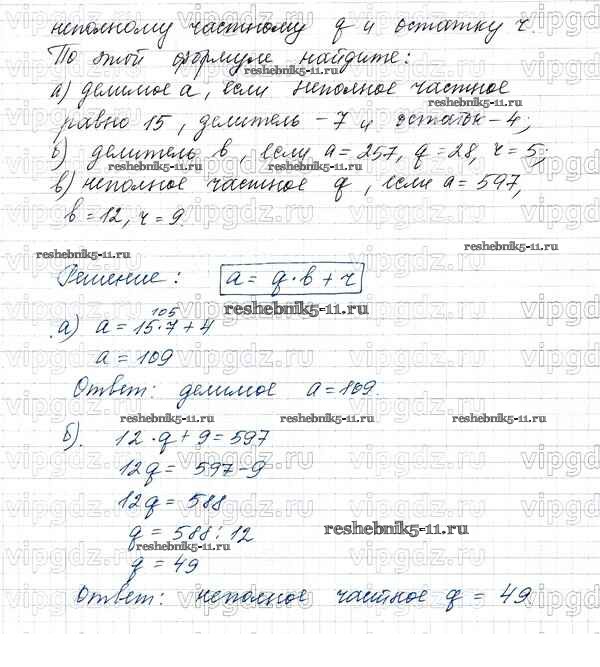 неполному частному q и остатку r.
По этой формуле найдите:
а) делимое a, если неполное частное
равно 15, делитель – 7 и остаток – 4;
б) делитель b, если a = 257, q = 28, r = 5;
в) неполное частное q, если a = 597,
b = 12, r = 9.
Решение: a = q · b + r
а) a = 15 · 7 + 4
105
a = 109
Ответ: делимое a = 109.
б). 12 · q + 9 = 597
12q = 597 - 9
12q = 588
q = 588 : 12
q = 49
Ответ: неполное частное q = 49
reshebnik5-11.ru
vipgdz.ru